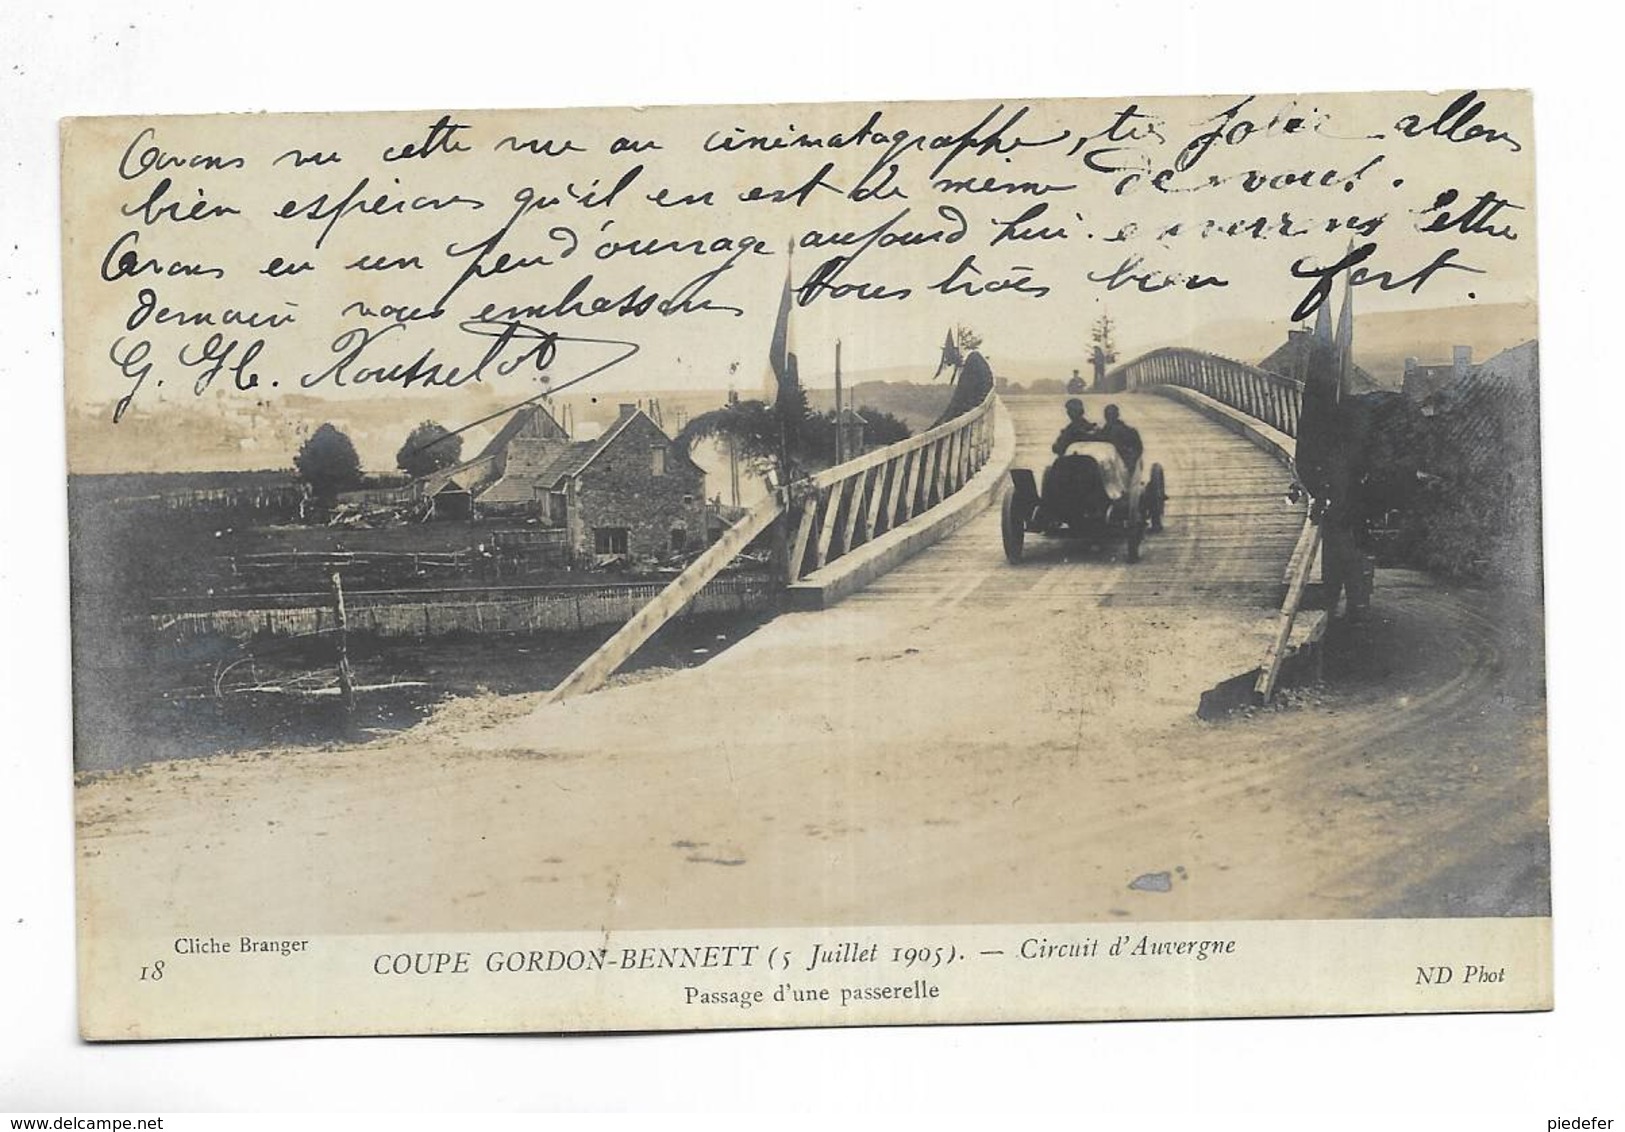 Avons vu cette vue au cinématographe, très jolie allons
bien espérons qu'il en est de même de vous.
Avons eu un peu d'ouvrage aujourd'hui. enverrons lettre
demain vous embrassons tous trois bien fort.
G. Rousselot
Cliche Branger
18
COUPE GORDON-BENNETT (5 Juillet 1905). — Circuit d'Auvergne
Passage d'une passerelle
ND Phot
www.delcampe.net
piedefer